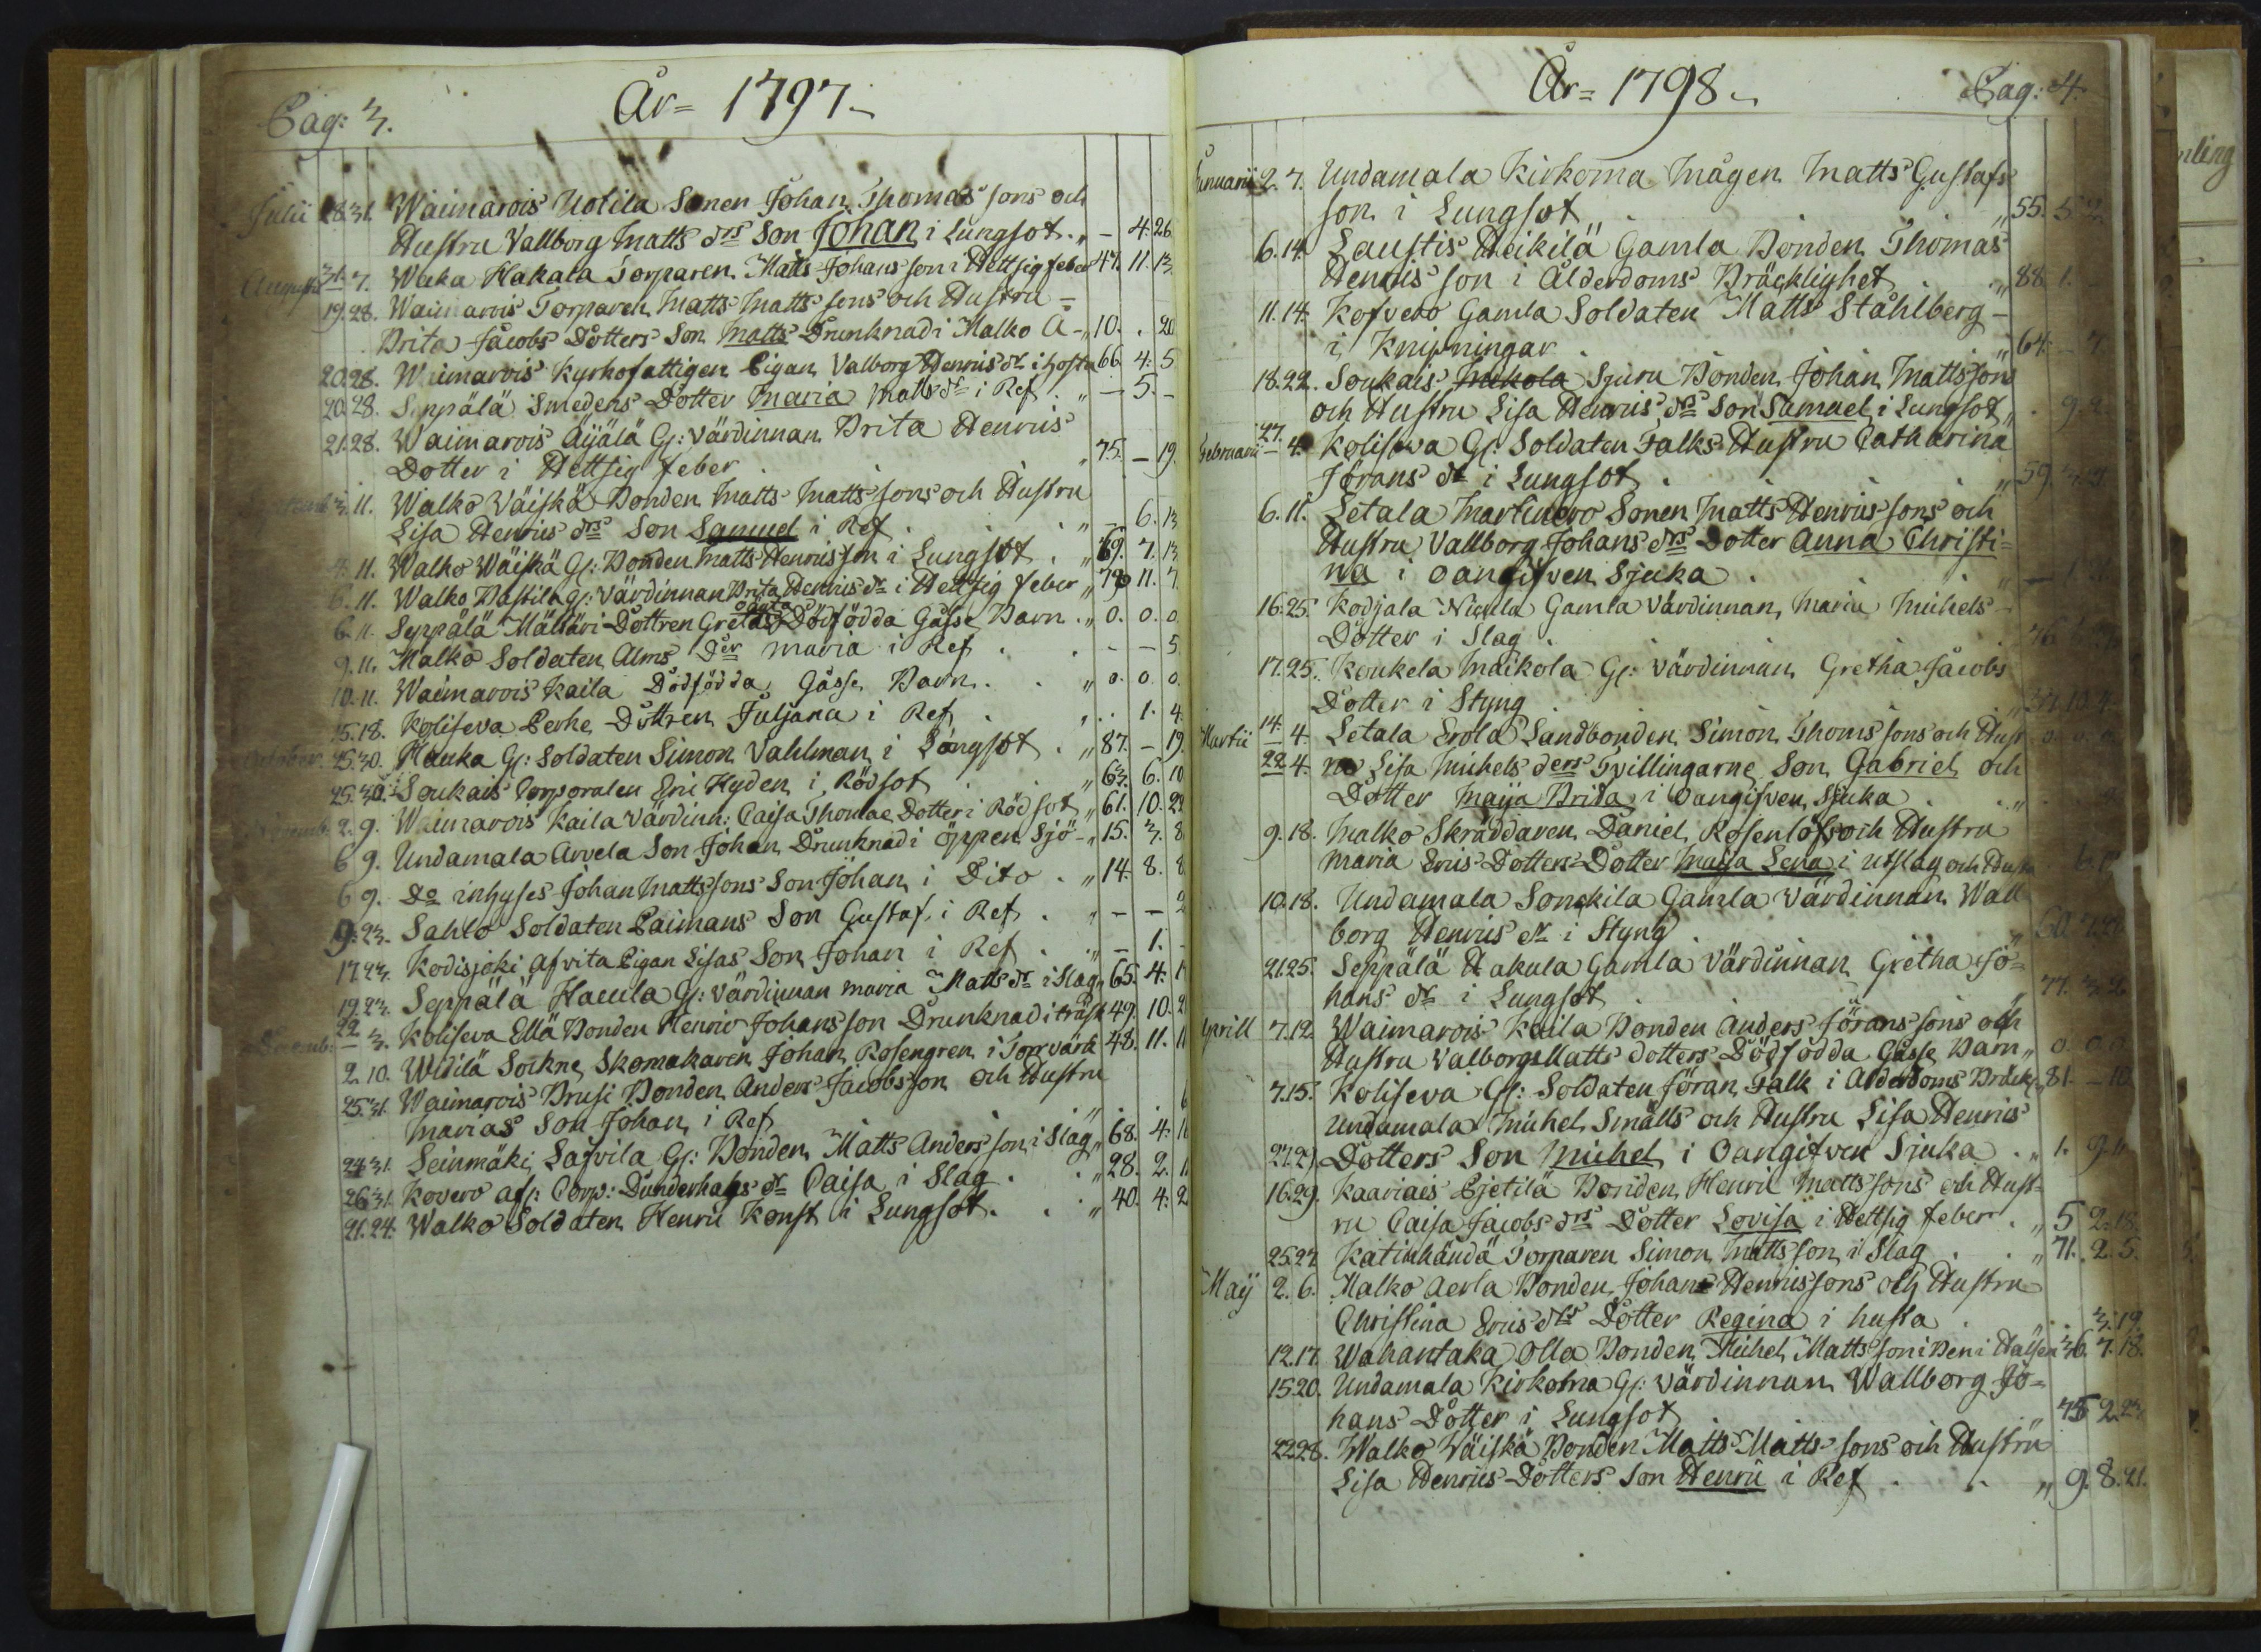 Pag: 3.
År= 1797.
Julii 28. 31. Waimarois Uotila Sonen Johan Thomas sons och
Hustru Vallborg Matts drs Son Johan i Lungsot. „ - 4. 26
Augusti 31. 7. Waka Hakala Torparen Matts Johans son i Hettsig feber 47. 11. 13.
19. 28. Waimarois Torparen Matts Matts sons och Hustru =
Brita Jacobs Dotters Son Matts Drunknad i Malko Å - „ 10. . 20
20. 28. Waimarois Kyrkofattigen Pigan Valborg Henrics dr i hosta 66. 4. 5
20. 28. Seppälä Smedens Dotter Maria Matts dr i Ref . „ - 5. -
21. 28. Waimarois Äijälä Gl: Värdinnan Brita Henrics
Dotter i Hettsig feber . „ 75. - 19.
Septemb 3. 11. Walko Wäiskä Bonden Matts Matts sons och Hustru
Lisa Henrics drs Son Samuel i Ref . . . „ - 6. 13
4. 11. Walko Wäiskä Gl: Bonden Matts Henrics son i Lungsot . „ 69. 7. 13
6. 11. Walko Pastila Gl: Värdinnan Brita Henrics dr i Hettsig feber „ 78 11. 7.
6. 11. Seppälä Mälkäri Dottren Gretas oägta Dödfödda Gåsse Barn . „ 0. 0. 0.
9. 11. Malko Soldaten Alms Der Maria i Ref . . - - 5
10. 11. Waimarois Kaila Dödfödda Gåsse Barn . . „ 0. 0. 0.
15. 18. Koliseva Perhe Dottren Juliana i Ref . „ . . 1. 4.
October. 25. 30. Hauka Gl: Soldaten Simon Vahlman i Lungsot . „ 87. - 19.
25. 30. Soukais Corporalen Eric Hyden i Rödsot . . „ 63. 6. 10
Novemb. 2. 9. Waimarois Kaila Värdinn: Caisa Thomae Dotter i Rödsot „ 61. 10. 22
6 9. Undamala Arvela Son Johan Drunknad i öppen Sjö - „ 15. 3. 8
6 9. Do inhyses Johan Matts sons Son Johan i Dito . „ 14. 8. 8
9. 23. Sahlo Soldaten Paimans Son Gustaf i Ref . „ - - 2
17. 23. Kodisjoki Afvita Pigan Lisas Son Johan i Ref . „ - 1. -
19. 23. Seppälä Hacula Gl: Värdinnan Maria Matts dr i Slag „ 65. 4. 1
Decemb: 22 3. Koliseva Ellä Bonden Henric Johans son Drunknad i träsk 49. 10. 2
2. 10. Widilä Sockne Skomakaren Johan Rosengren i Torrvärk 48. 11. 11
25. 31. Waimarois Prusi Bonden Anders Jacobs son och Hustru
Marias Son Johan i Ref . . „ . . 6
24. 31. Leinmäki Lassila Gl: Bonden Matts Anders son i Slag „ 68. 4. 1
26. 31. Kovero afl: Corp: Dunderhags dr Caisa i Slag . . „ 28. 2. 1
21. 24. Walko Soldaten Henric Konst i Lungsot . . „ 40. 4. 2
År= 1798.
Pag: 4.
Januarii 2. 7. Undamala Kirkoma Mågen Matts Gustafs
son i Lungsot . . „ 55. 5. 2
6. 14. Laustis Heikilä Gamla Bonden Thomas
Henrics son i Ålderdoms Bräcklighet . „ 88. 1. -
11. 14. Kofvero Gamla Soldaten Matts Ståhlberg -
i Knipningar . 64. - 7
18. 22. Soukais Mickola Sjuru Bonden Johan Matts sons
och Hustru Lisa Henrics drs Son Samuel i Lungsot „ . 9. 2
Februarii 27. 4. Kolisewa Gl: Soldaten Falks Hustru Catharina
Jörans dr i Lungsot . „ 59. 3.
6. 11. Letala Martinero Sonen Matts Henrics sons och
Hustru Vallborg Johans drs Dotter Anna Christi=
na i oangifven Sjuka . . . „ -
16. 25. Kodjala Nicula Gamla Värdinnan Maria Michels -
Dotter i Slag . . . 76.
17. 25. Koukela Maikola Gl: Värdinnan Gretha Jacobs
Dotter i Styng . . „ 10. 4
Martii 14. 4. Letala Erola Landbonden Simon Thoms sons och Hust
28. 4. ru Lisa Michels ders Tvillingarne Son Gabriel och
Dotter Maija Brita i Oangifven Sjuka . . „
9. 18. Malko Skräddaren Daniel Rosenlöfs och Hustru
Maria Erics Dotters Dotter Maija Lena i utslag och Husta 6.
10. 18. Undamala Sonckila Gamla Värdinnan Wall
borg Henrics dr i Styng . „ 60. 7.
21. 25. Seppälä Hakula Gamla Värdinnan Gretha Jo=
hans dr i Lungsot . „ 77. 3. 2.
Aprill 7. 12. Waimarois Kaila Bonden Anders Jörans sons och
Hustru Valborgs Matts dotters Dödfödda Gåsse Barn „ 0. 0. 0
7. 15. Koliseva Gl: Soldaten Jöran Falk i Ålderdoms Bräckl: 81. - 10
Undamala Michel Smålls och Hustru Lisa Henrics
27. 29. Dotters Son Michel i Oangifven Sjuka . „ 1. 9. 11
16. 29. Kaariais Pjetilä Bonden Henric Matts sons och Hust=
ru Caisa Jacobs drs Dotter Lovisa i Hettsig feber . „ 5 2. 18.
25. 27. Katinhändä Torparen Simon Matts son i Slag . . „ 71. 2. 5.
Maij 2. 6. Malko Aerla Bonden Johan Henrics sons och Hustru
Christina Erics drs Dotter Regina i husta . . . 3. 19.
12. 17. Wahantaka Olla Bonden Michel Matts son i Ben i Halsen 36. 7. 18.
15. 20. Undamala Kirkoma Gl: Värdinnan Wallborg Jo=
hans Dotter i Lungsot 75 2. 23.
22. 28. Walko Wäiskä Bonden Matts Matts sons och Hustru
Lisa Henrics Dotters Son Henric i Ref . . „ 9. 8. 21.